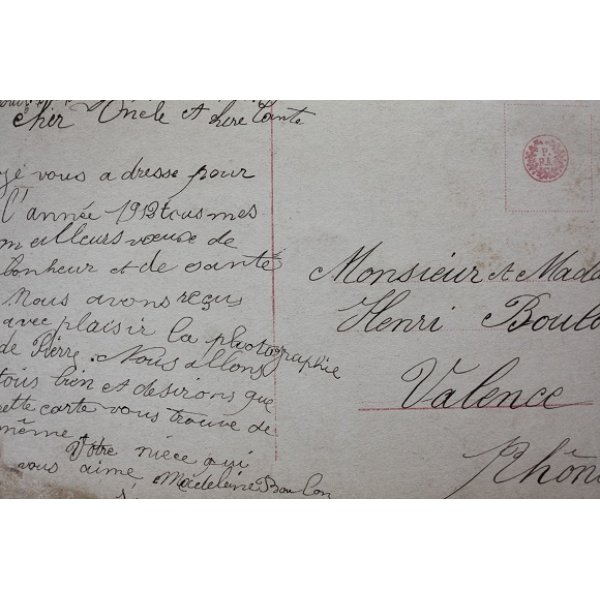 Cher Oncle et chère Tante
je vous adresse pour
l'année 1912 tous mes
meilleurs vœux de
bonheur et de santé
Nous avons reçus
avec plaisir la photographie
de Pierre. Nous allons
tous bien et desirons que
cette carte vous trouve de
même
Votre nièce qui
vous aime Madeleine Boulon
Monsieur et Mada
Henri Boulo
Valence
Rhôn